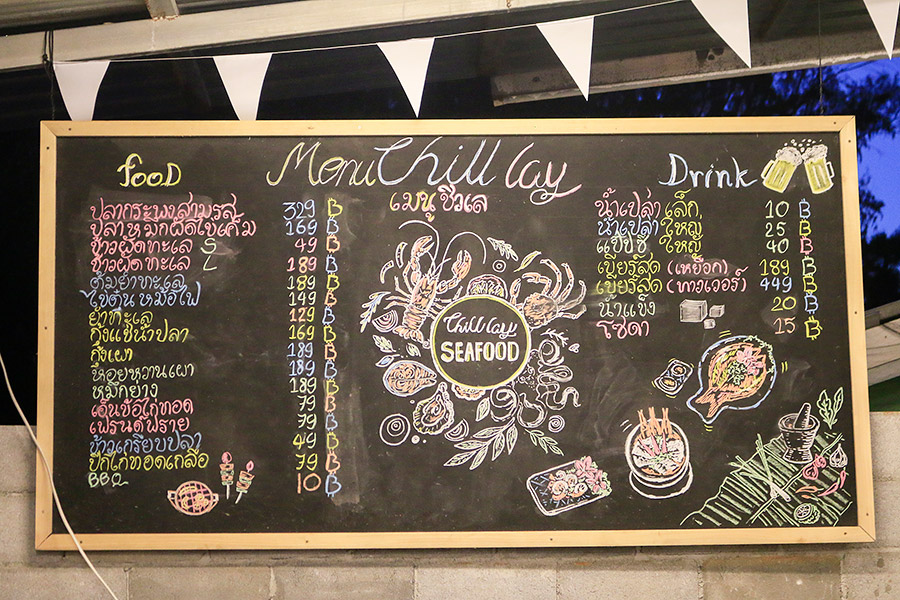 Menu Chill Lay
เมนู ชิวเล
food
ปลากระพงสามรส 329 ฿
ปลาหมึกผัดไข่เค็ม 169 ฿
ข้าวผัดทะเล S 49 ฿
ข้าวผัดทะเล L 189 ฿
ต้มยำทะเล 189 ฿
ไข่ตุ๋นหม้อไฟ 149 ฿
ยำทะเล 129 ฿
กุ้งแช่น้ำปลา 169 ฿
กุ้งเผา 189 ฿
หอยหวานเผา 189 ฿
หมึกย่าง 189 ฿
เอ็นข้อไก่ทอด 79 ฿
เฟรนด์ฟราย 79 ฿
ข้าวเกรียบปลา 49 ฿
ปีกไก่ทอดเกลือ 79 ฿
BBQ 10 ฿
Chill Lay
SEAFOOD
Drink
น้ำเปล่า เล็ก 10 ฿
น้ำเปล่า ใหญ่ 25 ฿
แป๊ปซี่ ใหญ่ 40 ฿
เบียร์สด (เหยือก) 189 ฿
เบียร์สด (ทาวเวอร์) 449 ฿
น้ำแข็ง 20 ฿
โซดา 15 ฿